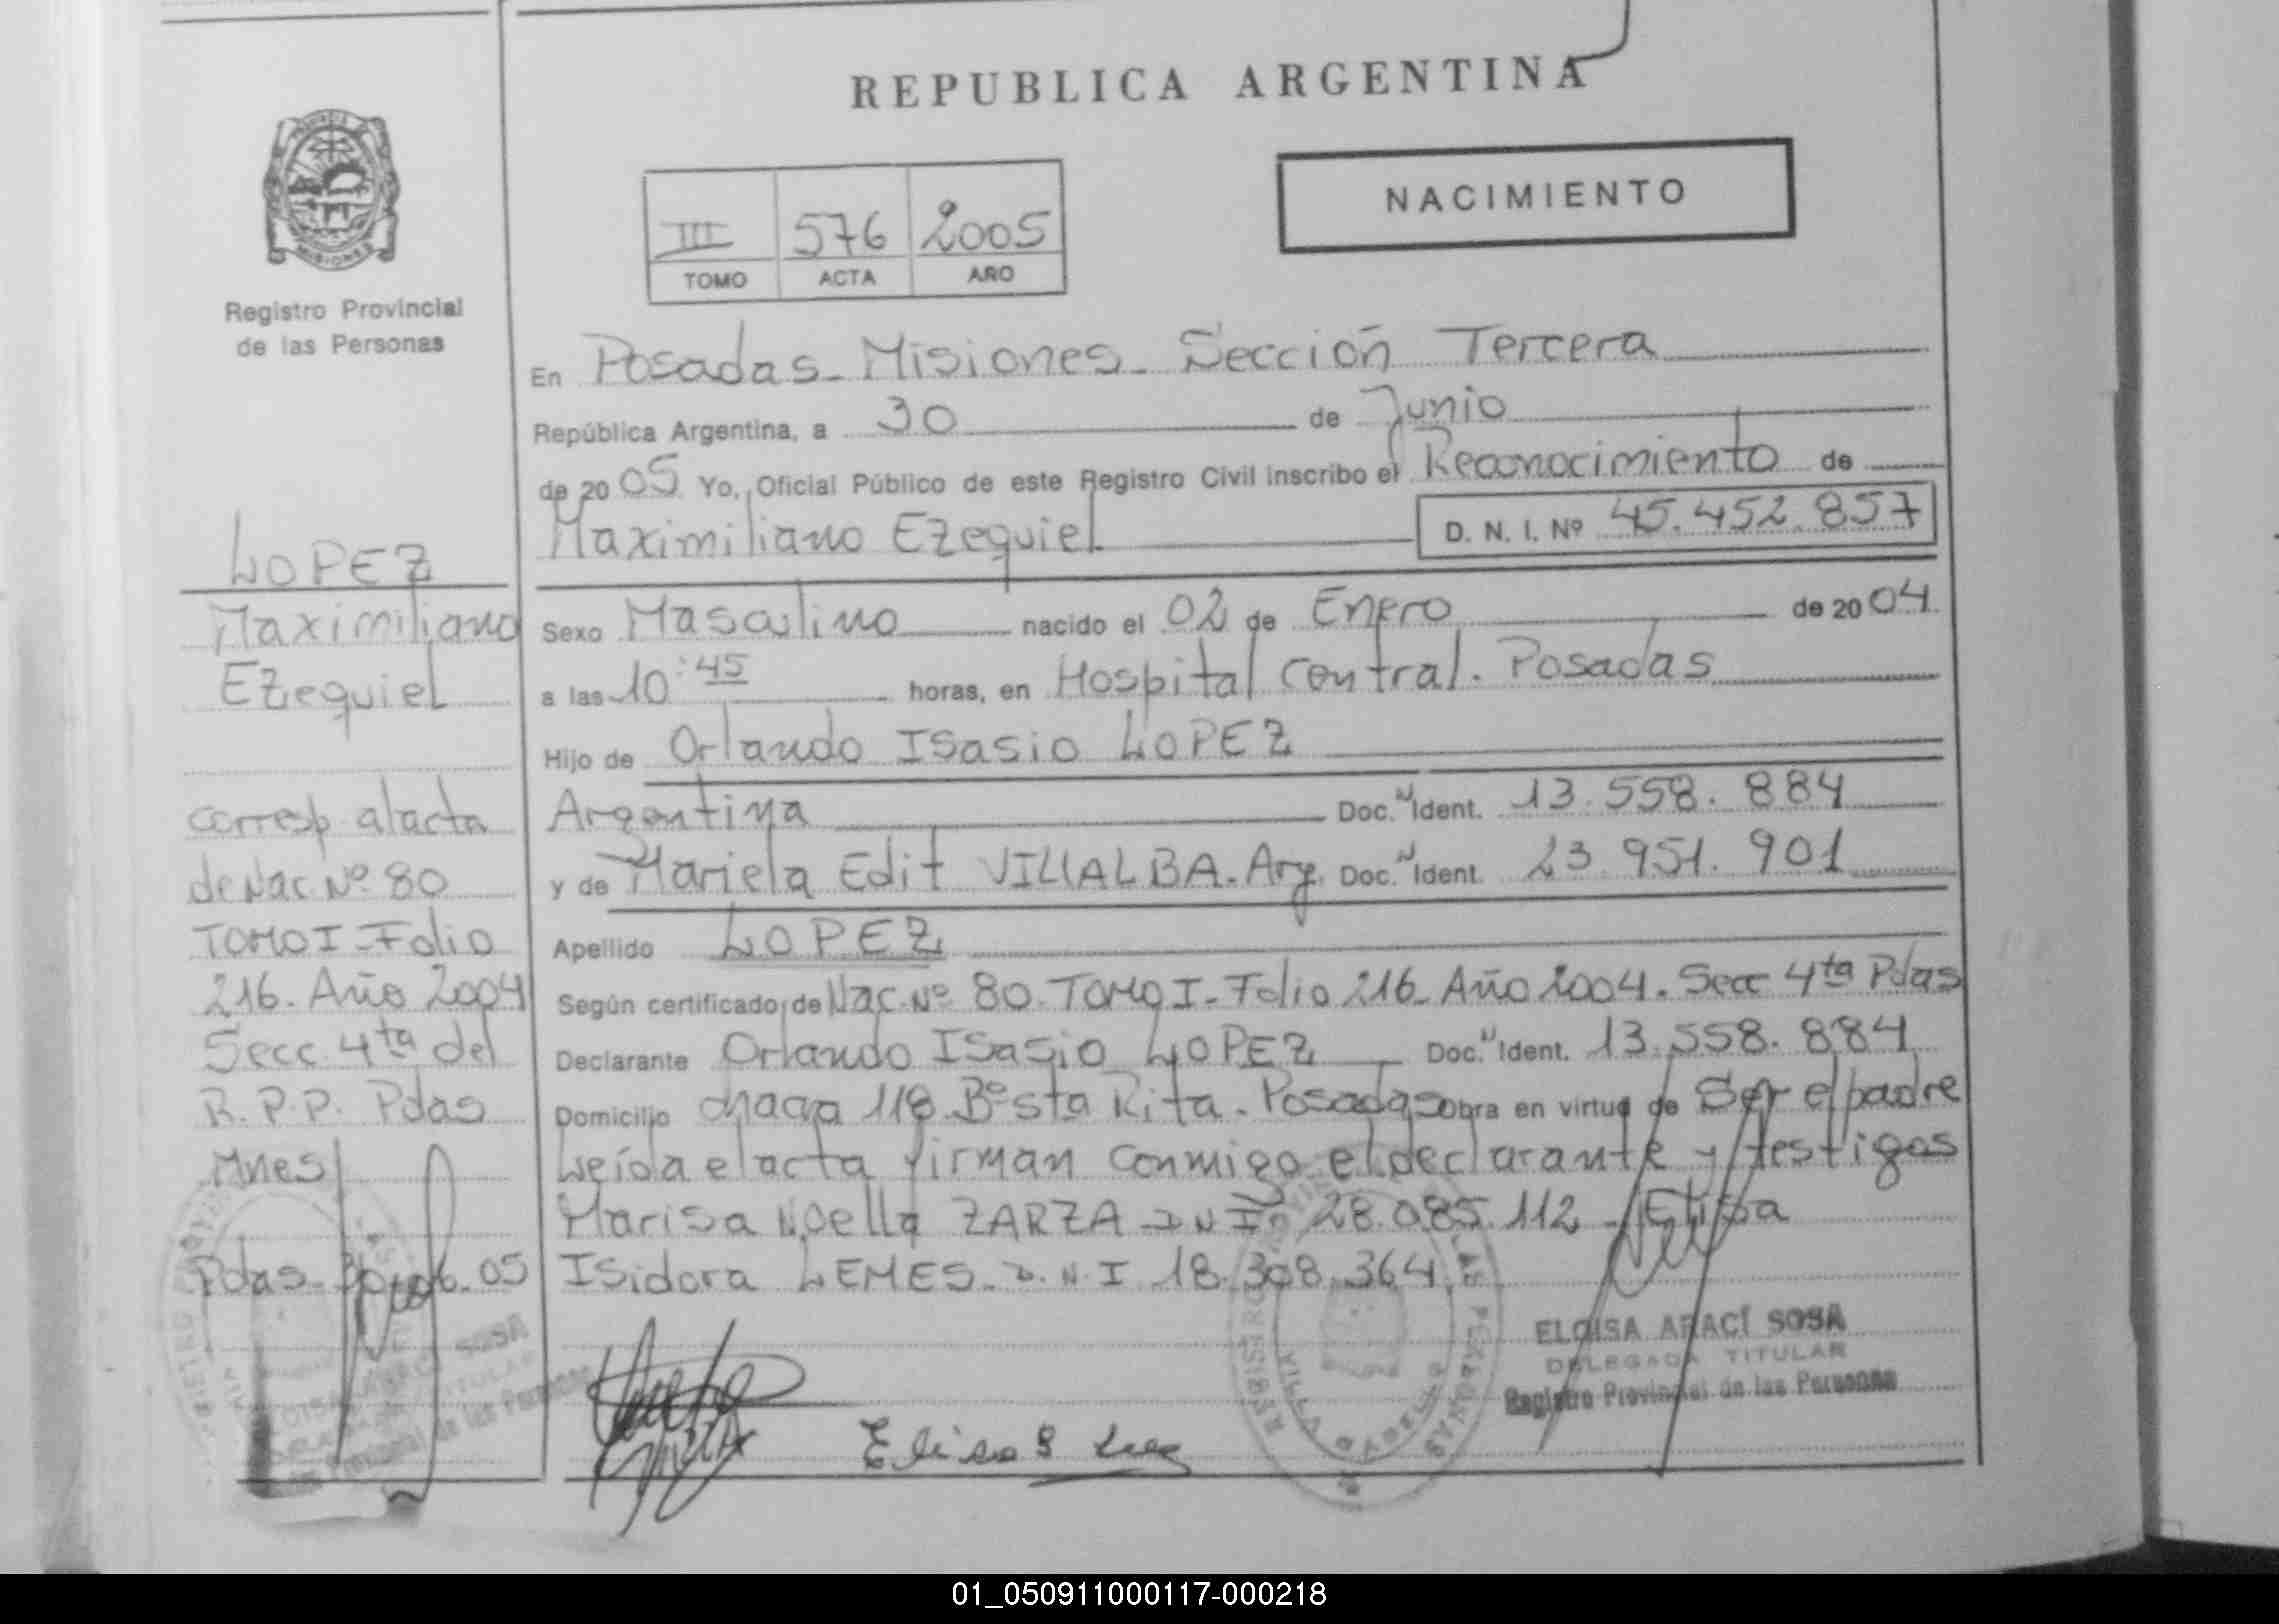 REPUBLICA ARGENTINA
NACIMIENTO
III 576 2005
TOMO ACTA AÑO
Registro Provincial
de las Personas
LOPEZ
Maximiliano
Ezequiel
corresp al acta
de Nac. Nº 80
TOMO I - Folio
216. Año 2004
Secc 4ta del
R.P.P. Pdas
Mnes
Pdas 30-06-05
En Posadas - Misiones - Sección Tercera
República Argentina, a 30 de Junio
de 2005 Yo, Oficial Público de este Registro Civil inscribo el Reconocimiento de
Maximiliano Ezequiel D. N. I. Nº 45.452.857
Sexo Masculino nacido el 02 de Enero de 2004
a las 10:45 horas, en Hospital Central. Posadas
Hijo de Orlando Isasio LOPEZ
Argentina Doc. Ident. 13.558.884
y de Mariela Edit VILLALBA. Arg. Doc. Ident. 23.951.901
Apellido LOPEZ
Según certificado de Nac. Nº 80. TOMO I - Folio 216 - Año 2004. Secc 4ta Pdas
Declarante Orlando Isasio LOPEZ Doc. Ident. 13.558.884
Domicilio chacra 118 Bº Sta Rita. Posadas obra en virtud de Ser el padre
Leída el acta firman conmigo el declarante y testigos
Marisa Noelia ZARZA D N I 28.085.112 - Elisa
Isidora LEMES D.N.I 18.308.364
ELOISA ARACÍ SOSA
DELEGADA TITULAR
Registro Provincial de las Personas
01_050911000117-000218